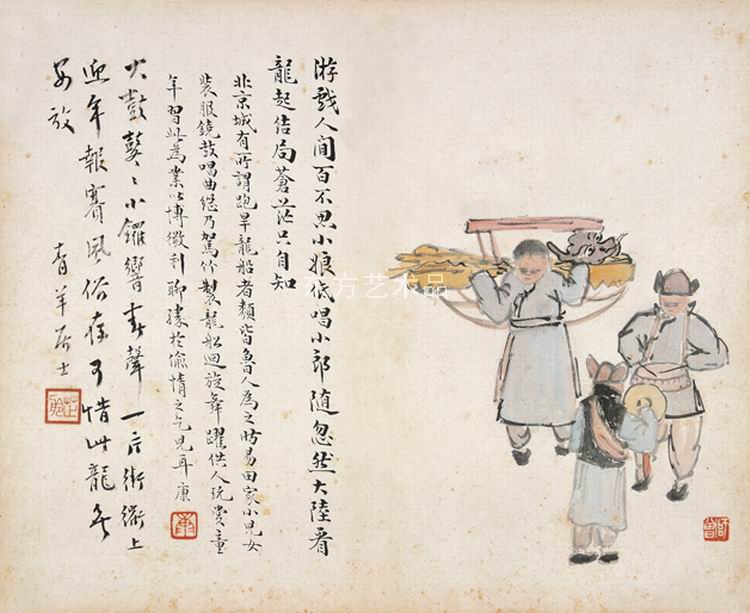 游戲人間百不思小娘低唱小郎随忽然大陸看
龍起結局蒼茫只自知
北京城有所謂跑旱龍船者類皆魯人為之時易田家小兒女
裝服鐃鼓唱曲継乃駕竹製龍船迴旋舞躍供人玩賞童
年習此為業以博微利聊勝於偷惰之乞兒耳康
大鼓鼕〻小鑼響春聲一片街衢上
迎年報賽風俗存可惜此龍無
安放
青羊居士
康
師曾
东方艺术品